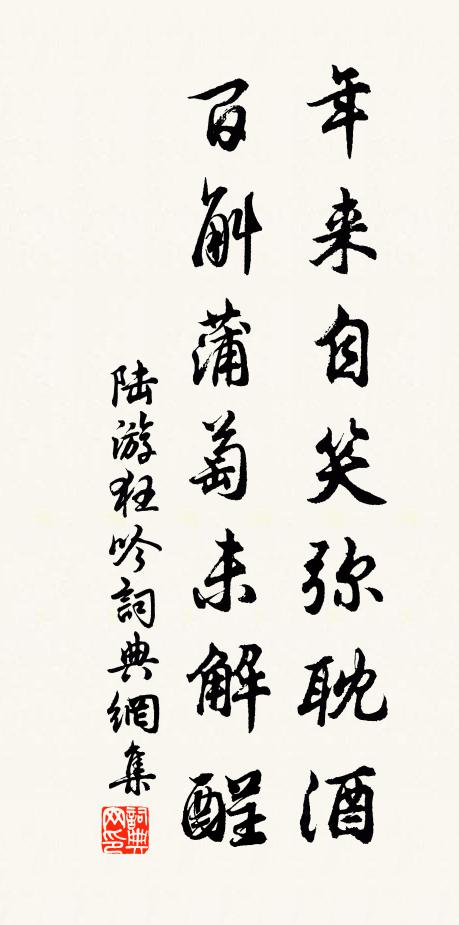 年来自笑弥耽酒
百斛蒲萄未解酲
陆游狂吟詞典網集
詞典网印